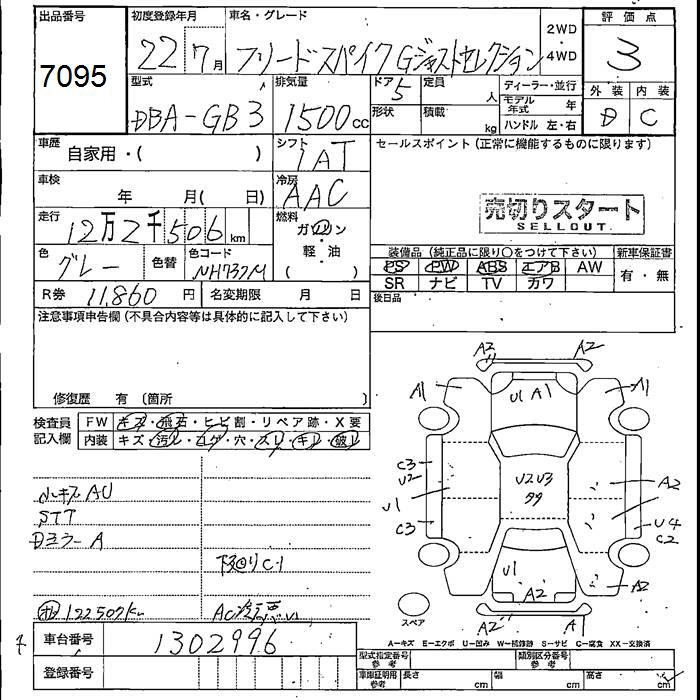 出品番号 初度登録年月 車名・グレード 2WD・4WD 評価点
7095 22年 7月 フリードスパイク Gジャストセレクション 3
型式 排気量 ドア 5 定員 人 ディーラー・並行 外装 内装
DBA-GB3 1500cc 形状 積載 kg モデル年式 年 D C
ハンドル 左・右
車歴 自家用・( ) シフト IAT セールスポイント (正常に機能するものに限ります)
車検 年 月( 日) 冷房 AAC
売切りスタート
SELLOUT
走行 12万2千506km 燃料 ガソリン・軽・油 ( )
装備品 (純正品に限り○をつけて下さい) 新車保証書
色 グレー 色替 色コード NH737M
PS PW ABS エアB AW 有・無
SR ナビ TV カワ
R券 11,860円 名変期限 月 日 後日品
注意事項申告欄 (不具合内容等は具体的に記入して下さい)
修復歴 有 (箇所 )
検査員記入欄 FW キズ・飛石・ヒビ割・リペア跡・X要
内装 キズ・汚レ・コゲ・穴・スレ・キレ・破レ
A2 A2
A1 U1 A1 A1
C3
U2 U2 U3 A2
U1 99
C3 U4
C2
U1 A2 A2
スペア A2 A1
小キズAU
STT
Dミラー A
下廻りC1
122507km
A-キズ E-エクボ U-凹み W-補修跡 S-サビ C-腐食 XX-交換済
車台番号 1302996 型式指定番号 参考 類別区分番号 参考
登録番号 車庫証明用 参考 長さ cm 幅 cm 高さ cm